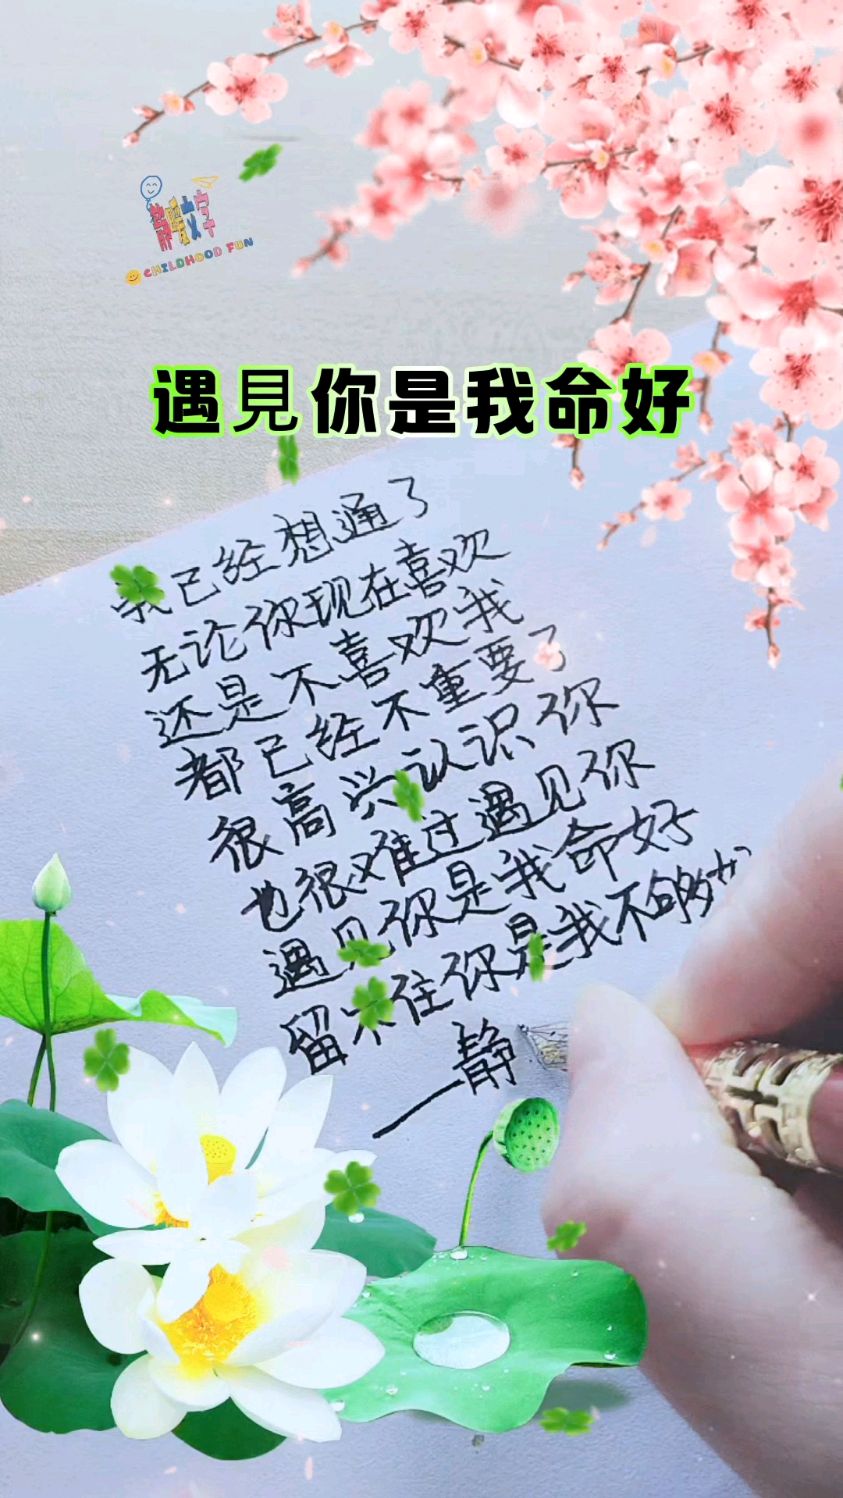 静暖文字
CHILDHOOD FUN
遇見你是我命好
我已经想通了
无论你现在喜欢
还是不喜欢我
都已经不重要了
很高兴认识你
也很难过遇见你
遇见你是我命好
留不住你是我不够
一静